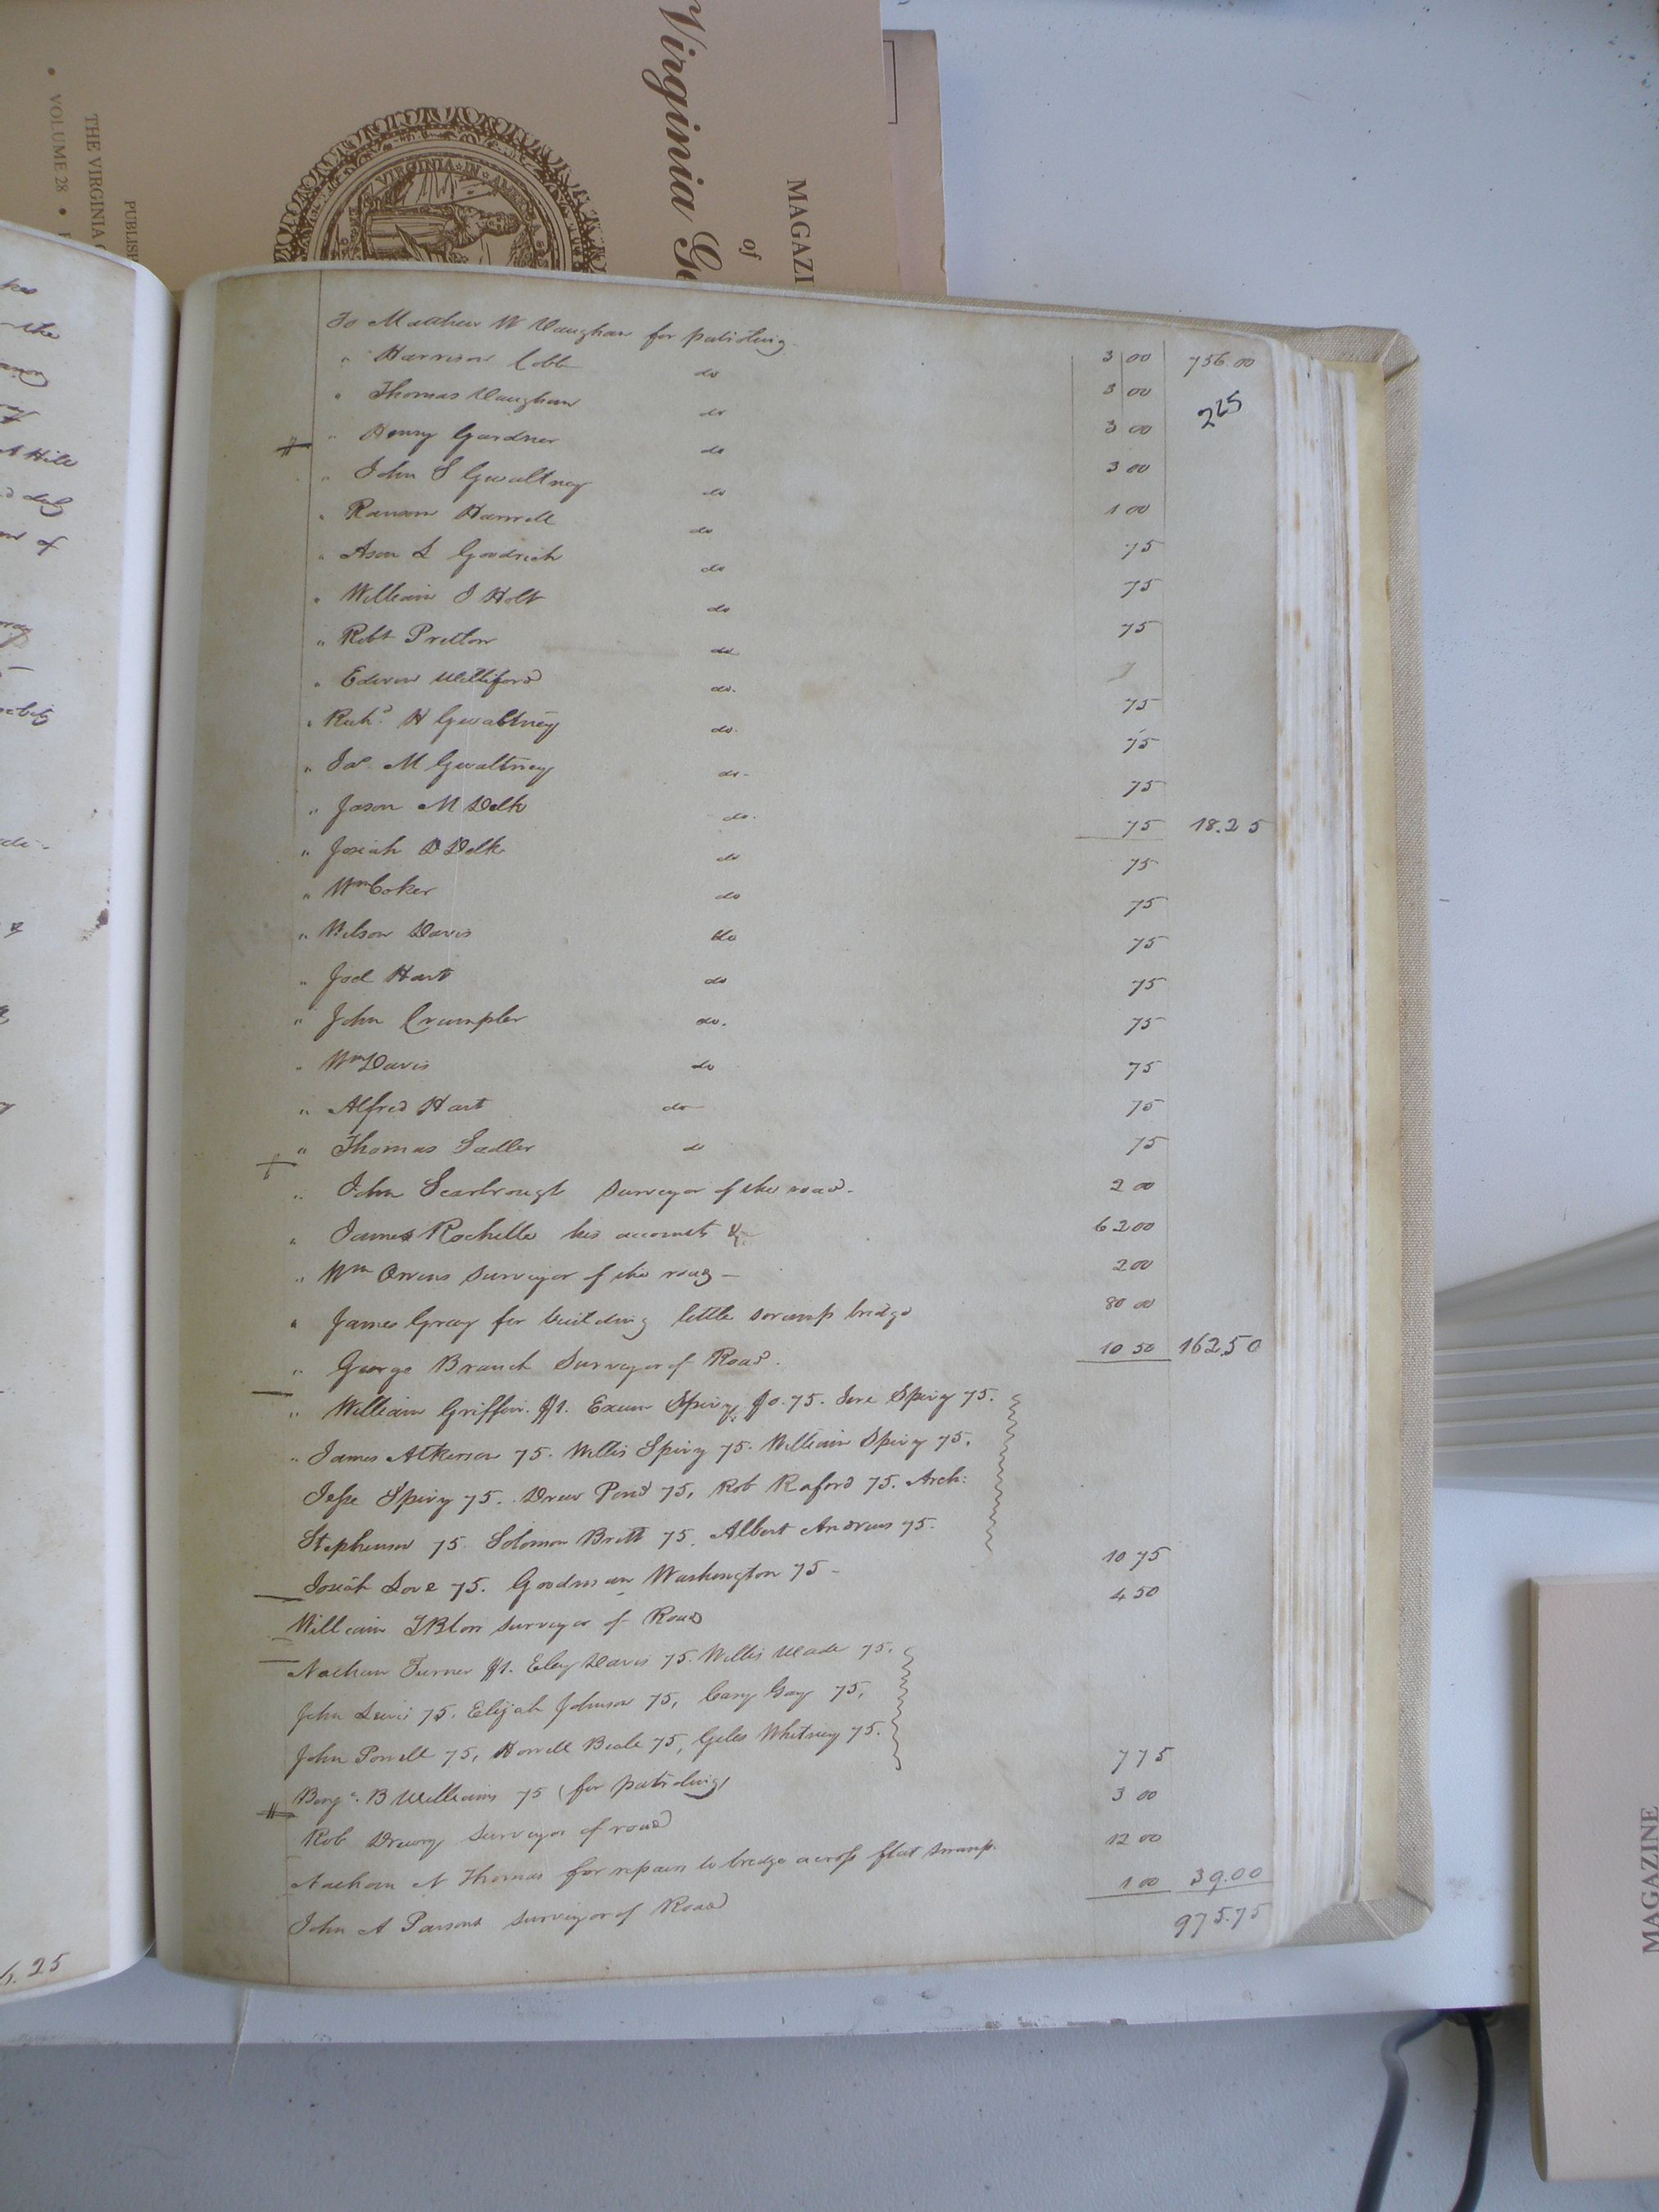 Virginia Ge
MAGAZI
of
PUBLISH
THE VIRGINIA
• VOLUME 28 •
VIRGINIA IN AME
225
To Matthew W Vaughan for patroling 3 00 756.00
" Harrison Cobb do 3 00
" Thomas Vaughan do 3 00
" Henry Gardner do 3 00
" John S Gwaltney do 1 00
" Ransom Harwell do 75
" Ason L Goodrich do 75
" William J Holt do 75
" Robt Pretlow do
" Edwin Williford do. 75
" Richd. H Gwaltney do. 75
" Jas. M Gwaltney do. 75
" Jason M Delk do. 75 18.25
" Josiah D Delk do 75
" Wm Coker do 75
" Wilson Davis do 75
" Joel Hart do 75
" John Crumpler do. 75
" Wm Davis do 75
" Alfred Hart do 75
" Thomas Sadler do 75
" John Scarbrough surveyor of the road. 2 00
" James Rochelle his accounts &c 62 00
" Wm Owens surveyor of the road 2 00
" James Gray for building little swamp bridge 80 00
" George Branch Surveyor of Road. 10 50 162.50
" William Griffin. $1. Exum Spivy, Jo. 75. Jere Spivy 75.
" James Atkerson 75. Willis Spivy 75. William Spivy 75.
Jesse Spivy 75. Drew Pond 75, Rob Raford 75. Arch:
Stephenson 75. Solomon Britt 75. Albert Andrews 75.
Josiah Love 75. Goodman Washington 75 10 75
William surveyor of Road 4 50
Nathan Turner $1. Eley Davis 75. Willis Wade 75.
John Lewis 75. Elijah Johnson 75, Cary Gay 75,
John Powell 75, Howell Beale 75, Giles Whitney 75.
Benja. B Williams 75 (for patroling) 7 75
Rob Drewry surveyor of road 3 00
Nathan N Thomas for repairs to bridge across flat swamp. 12 00
John A Parsons surveyor of Road 1 00 39.00
975.75
25
MAGAZINE